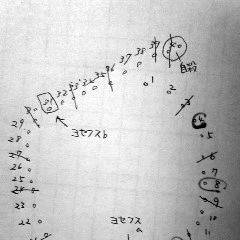 37
38
39
自殺
1
2
3
5
6
7
8
9
10
36
35
34
33
32
31
29
28
27
26
25
24
23
22
ヨセフスb
ヨセフスa